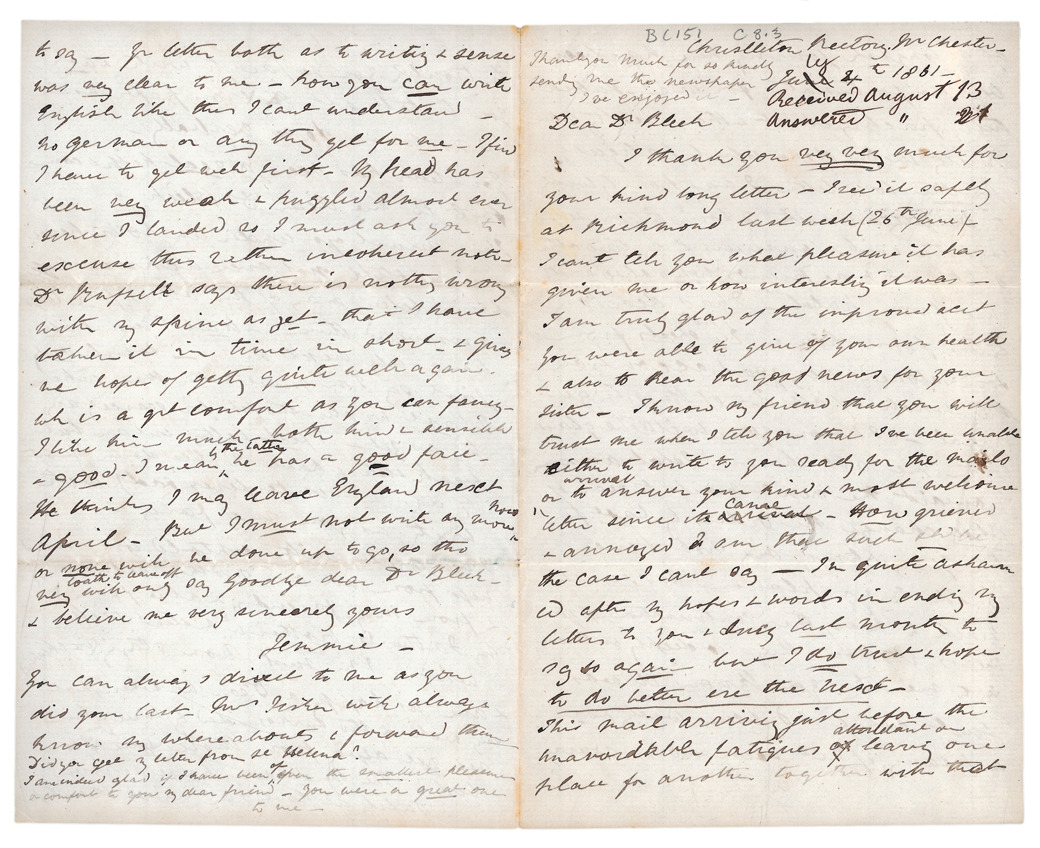 BC151 C8.3
Christleton Rectory. Nr Chester -
July 4th 1861 -
Thank you much for so kindly
sending me the newspaper
I've enjoyed it -
Received August 13
Answered " 21
Dear Dr Bleek
I thank you very very much for
your kind long letter - I recd it safely
at Richmond last week (26th June) -
I cant tell you what pleasure it has
given me or how interesting it was -
I am truly glad of the improved acct
you were able to give of your own health
& also to hear the good news for your
sister - I know my friend that you will
trust me when I tell you that I've been unable
either to write to you ready for the mails
arrival
or to answer your kind & most welcome
came
letter since its arrival - How grieved
& annoyed I am that such
the case I cant say - I'm quite asham
ed after my hopes & words in ending my
letters to you & Lucy last month to
say so again but I do trust & hope
to do better ere the next -
This mail arriving just before the
attendant on
unavoidable fatigues of leaving one
place for another together with that
to say - Yr letter both as to writing & sense
was very clear to me - how you can write
English like this I cant understand -
no german or any thg yet for me - I find
I have to get well first - My head has
been very weak & puzzled almost ever
since I landed so I must ask you to
excuse this rather incoherent note -
Dr Russell says there is nothg wrong
with my spine as yet - that I have
taken it in time in short - & gives
me hope of gettg quite well again -
wh is a gt comfort as you can fancy -
I like him much, both kind & sensible
the latter
& good. I mean, he has a good face -
He thinks I may leave England next
April - But I must not write any more
now
or none will be done up to go, so tho
loath to leave off
very will only say Goodbye dear Dr Bleek -
& believe me very sincerely yours
Jemmie -
You can always direct to me as you
did your last - Mrs Fisher will always
know my whereabouts & forward them
Did you get my letter from St Helena?
I am indeed glad if I have been of even the smallest pleasure
or comfort to you my dear friend - you were a great one
to me -